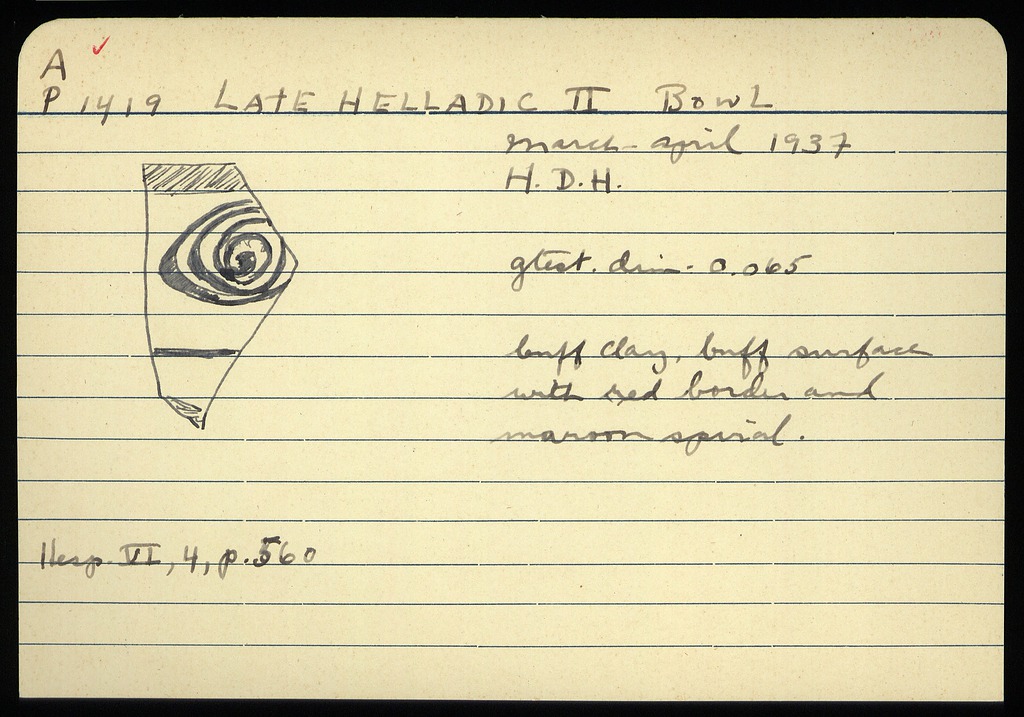 A
P 1419 LATE HELLADIC II BOWL
march - april 1937
H. D. H.
gtest. dim. 0.065
buff clay, buff surface
with red border and
maroon spiral.
Hesp. VI, 4, p. 560